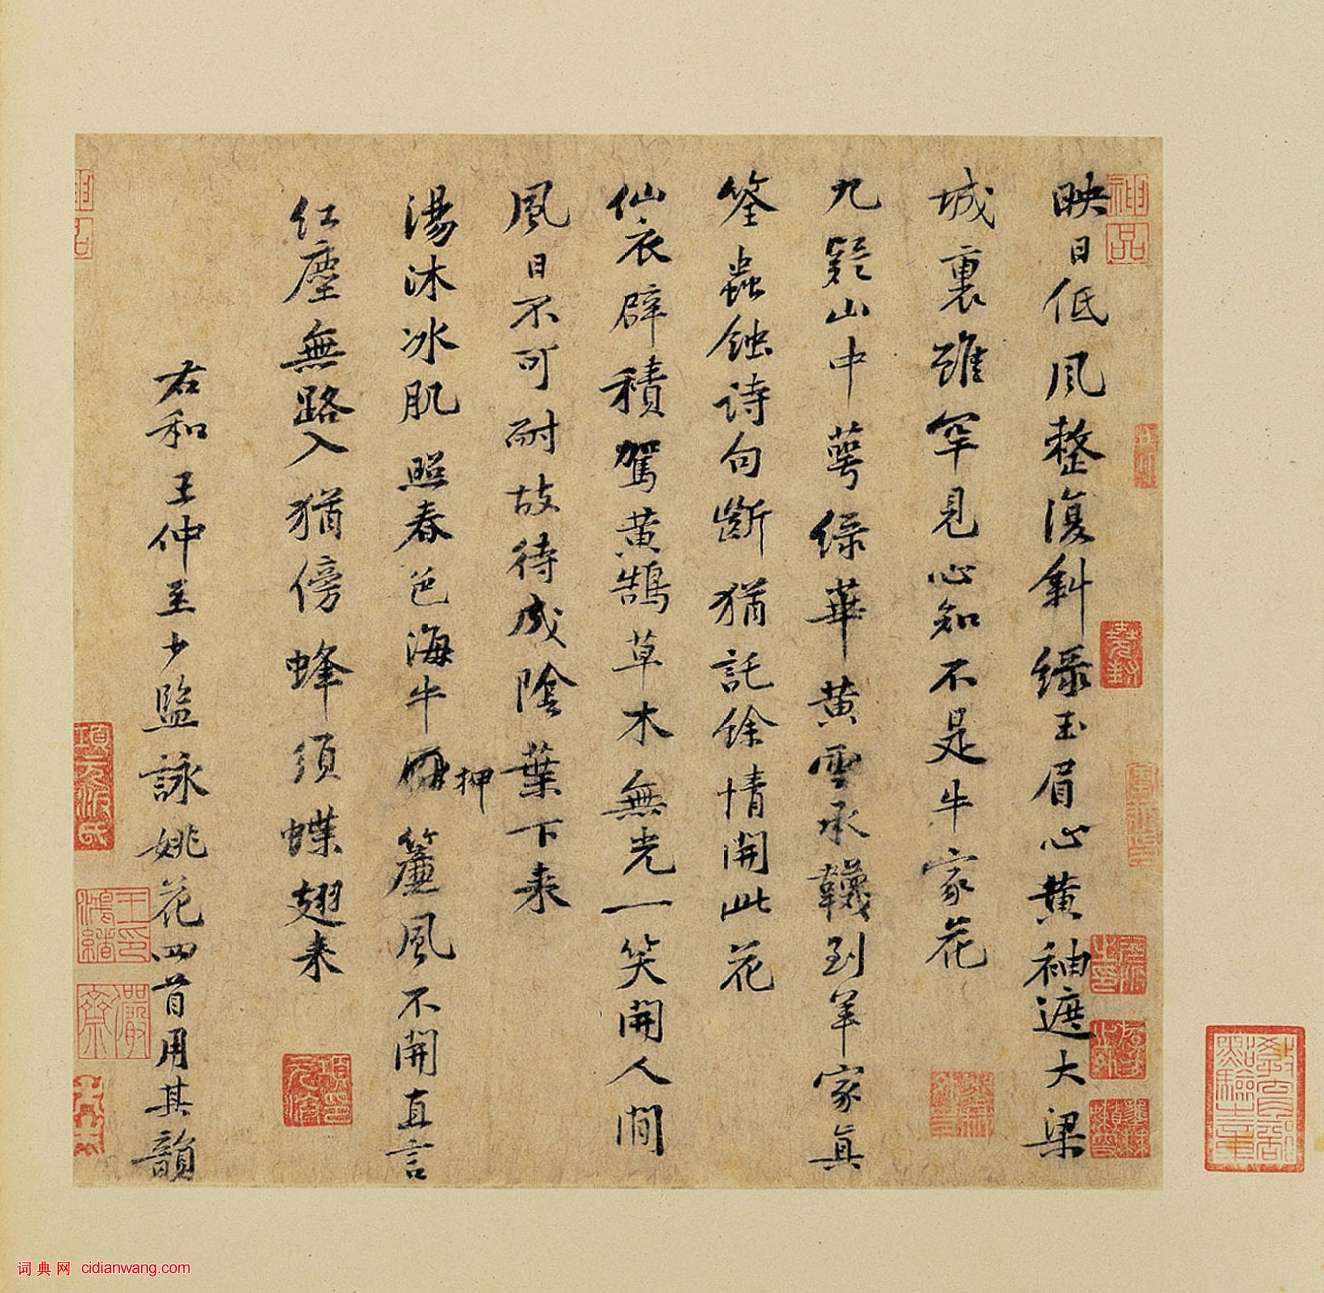 映日低風整復斜綠玉眉心黃袖遮大梁
城裏雖罕見心知不是牛家花
九疑山中萼綠華黃雲承韈到羊家真
筌蟲蝕詩句斷猶託餘情開此花
仙衣襞積駕黃鵠草木無光一笑開人間
風日不可耐故待成陰葉下來
湯沐冰肌照春色海牛押簾風不開直言
紅塵無路入猶傍蜂須蝶翅來
右和王仲至少監詠姚花四首用其韻
神品
項元汴氏
詞典网 cidianwang.com